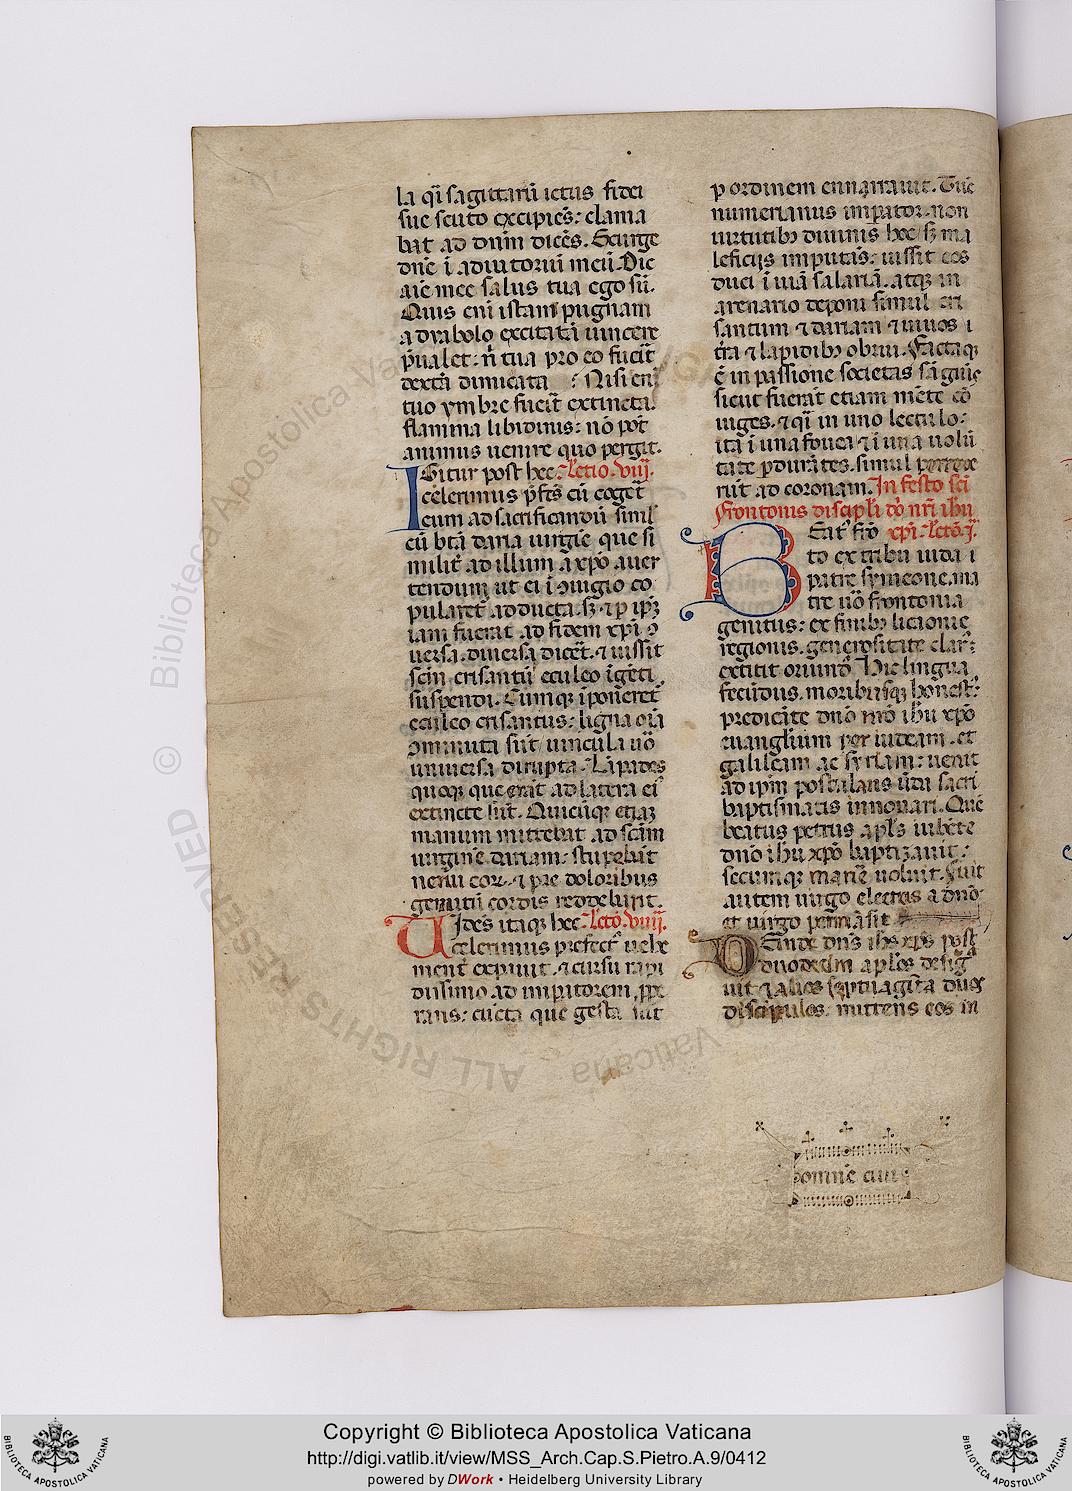 la qͥ sagittarū ictus fidei
sue scuto excipiēs: clama
bat ad dnm̄ dicēs. Exurge
dnē ī adiutoriū meū. Dic
aīe mee salus tua ego sū.
Quis enī istam pugnam
a dyabolo excitatā uincere
p̄ualet: n̄ tua pro eo fuerit
dext̄a dimicata: Nisi enī
tuo ymbre fuerit extincta
flamma libidinis: nō pot̄
animus uenire quo pergit.
IGitur post hec. Lc̄tio. viij.
celerinus p̄fc̄tꝰ cū coget̄
eum ad sacrificandū simĺ
cū btā daria uirgīe que si
milit̄ ad illum a xp̄o auer
tendum ut ei ī ꝯiugio co
pularet᷑ adducta. sꝫ ꞇ p ip̄ꝫ
iam fuerat ad fidem xp̄i ꝯ
uersa. diuersa dicet̄. ꞇ iussit
scm̄ crisantū eculeo īgēti
suspendi. Cumqꝫ īponeret᷑
eculeo crisantus: ligna oīa
ꝯminuta sūt uincula uō
uniuersa dirupta. Lāpades
quoqꝫ que erāt ad latera eiꝰ
extincte sūt. Quicūqꝫ etiaꝫ
manum mittebāt ad scām
uirginē dariam: stupebāt
neruū cor. ꞇ pre doloribus
gemitū cordis reddebūt.
UIdēs itaqꝫ hec. Lc̄tō. viiij.
celerinus prefectꝰ uehe
ment̄ expauit. ꞇ cursu rapi
dissimo ad imp̄atorem ꝓpe
rans: cūcta que gesta sūt
p ordinem ennarrauit. Tūc
numerianus imp̄ator. non
uirtutibꝫ diuinis hec sꝫ ma
leficijs imputās: iussit eos
duci ī uiā salariā. atqꝫ in
arenario deponi simul cri
santum ꞇ dariam ꞇ uiuos ī
t̄ra ꞇ lapidibꝫ obrui. Factaqꝫ
ē in passione societas sāguīe
sicut fuerāt etiam mēte cō
iuges. ꞇ qͥ in uno lectulo:
itā ī una fouea ꞇ ī una uolū
tate pdurātes. simul perrexe
rūt ad coronam. In festo scī
Frontonis discipĺi dn̄i nr̄i ihu
xp̄i. Lc̄tō. j.
BEatꝰ frō
to ex tribu iuda ī
patre symeone. ma
tre uō frontonia
genitus: ex finibꝫ licionie
regionis. generositate clarꝰ
extitit oriundꝰ. Hic lingua
fecūdus. moribusqꝫ honestꝰ:
predicāte dnō nrō ihu xp̄o
euangĺium per iudeam. et
galileam ac syriam: uenit
ad ip̄m postulans ūda sacri
baptismatis innouari. Quē
beatus petrus apĺs iubēte
dnō ihu xp̄o baptizauit:
secumqꝫ manē uoluit. Fuit
autem uirgo electus a dnō
et uirgo p̄māsit
DEinde dns̄ ihs xp̄s post
duodecim apĺos desig
uit ꞇ alios septuagīta duos
discipulos. mittens eos in
domine ciui
© Biblioteca Apostolica Vaticana
ALL RIGHTS RESERVED
Copyright © Biblioteca Apostolica Vaticana
http://digi.vatlib.it/view/MSS_Arch.Cap.S.Pietro.A.9/0412
powered by DWork • Heidelberg University Library
BIBLIOTECA APOSTOLICA VATICANA
BIBLIOTECA APOSTOLICA VATICANA